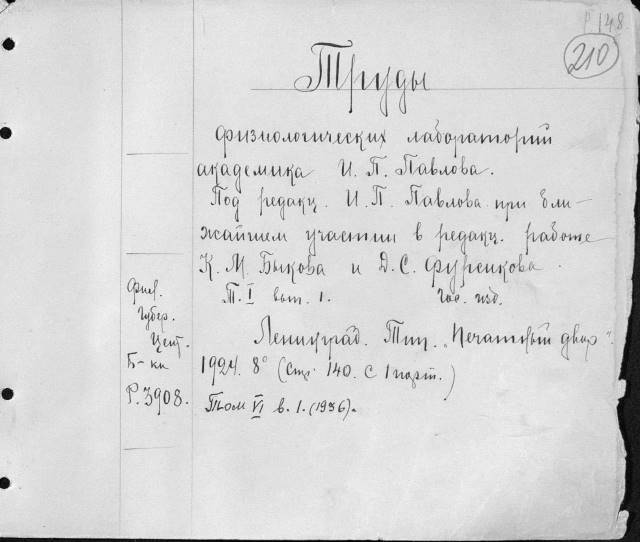 148
210
Труды
физиологических лабораторий
академика И. П. Павлова.
Под редакц. И. П. Павлова при бли-
жайшем участии в редакц. работе
К. М. Быкова и Д. С. Фурсикова.
Т. I вып. 1. Гос. изд.
Ленинград. Тип. „Печатный двор".
1924. 8° (стр. 140. с 1 портр.)
Том VI в. 1. (1936).
Губер.
Цент.
Б-ки
Р. 3908.